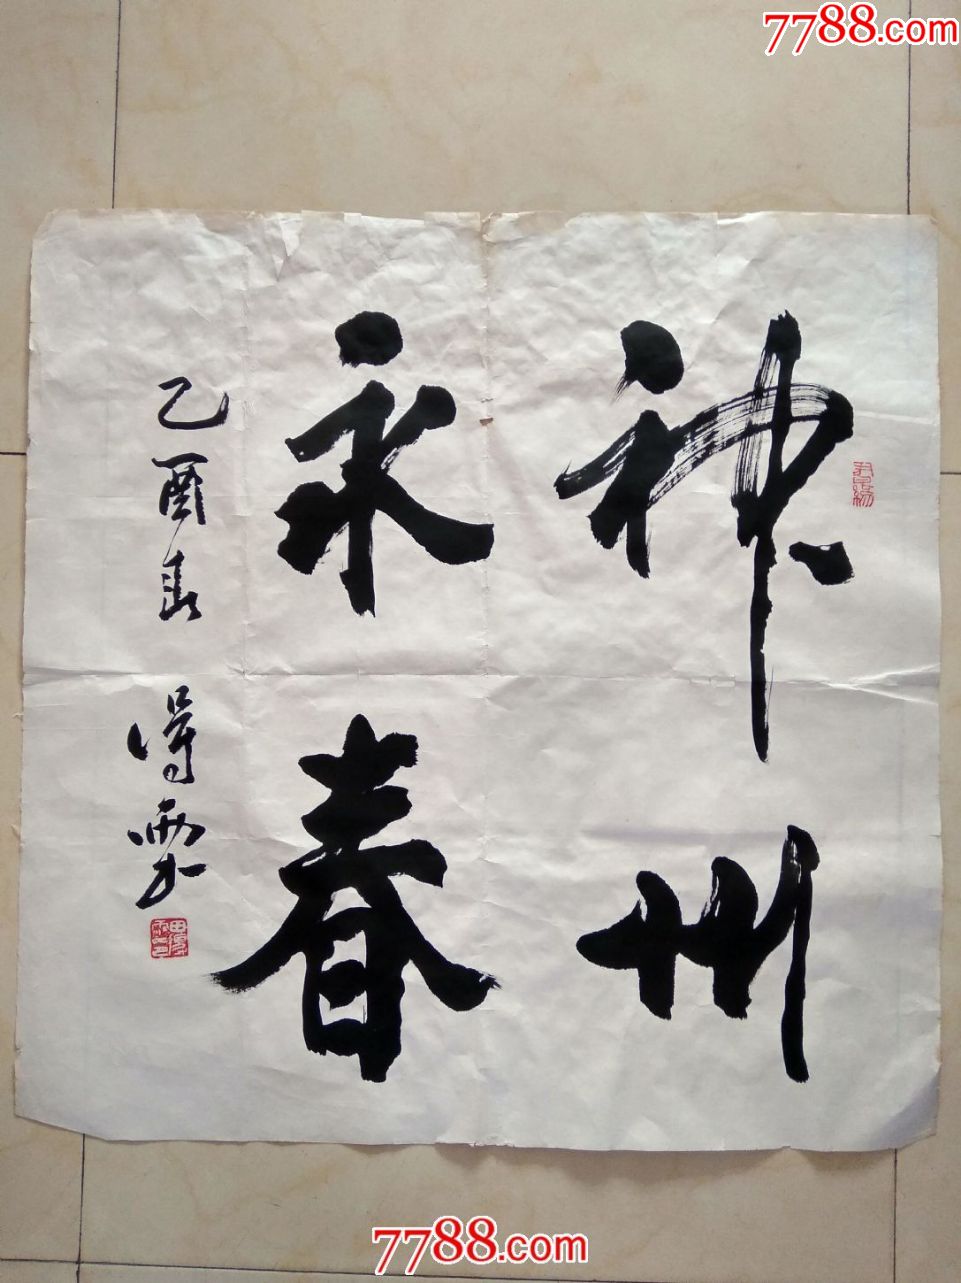 7788.com
神州
永春
乙酉春 得雲
7788.com